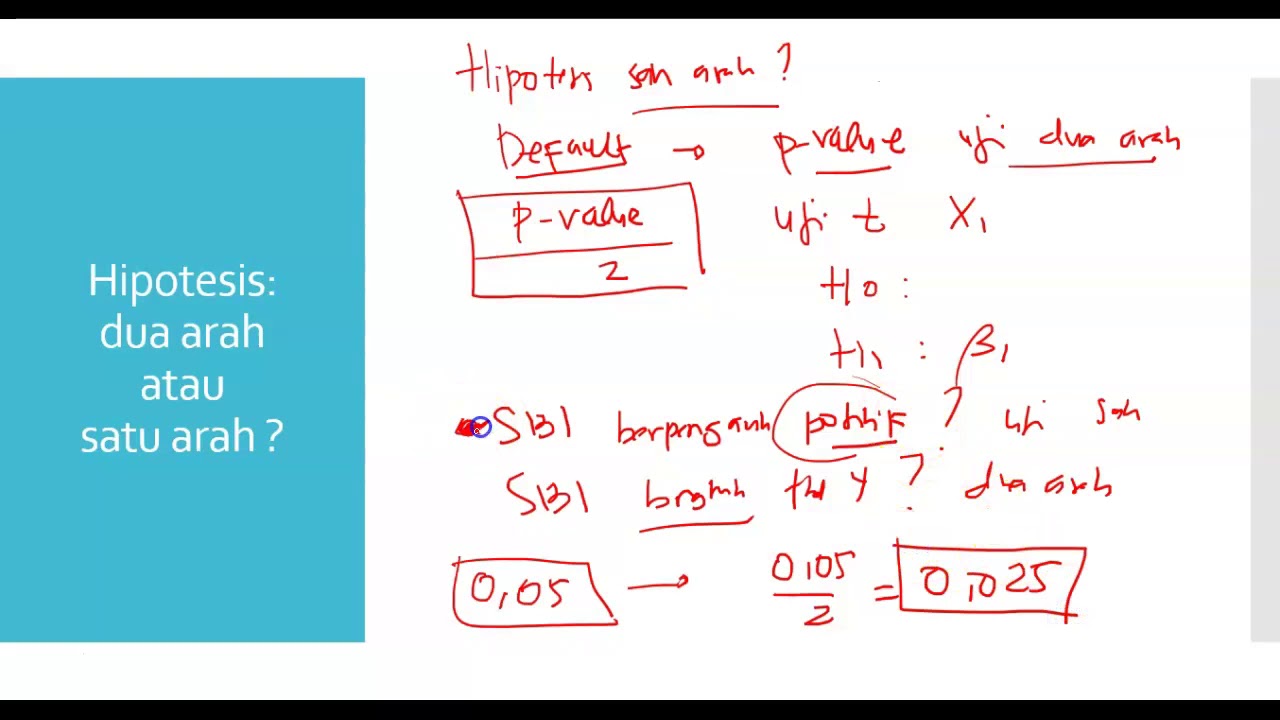 Hipotesis:
dua arah
atau
satu arah ?
Hipotesis satu arah ?
Default → p-value uji dua arah
p-value
2
uji t X1
H0 :
H1 : β1
SBI berpengaruh positif ? uji satu
SBI thd Y ? dua arah
0,05 → 0,05
2
= 0,025